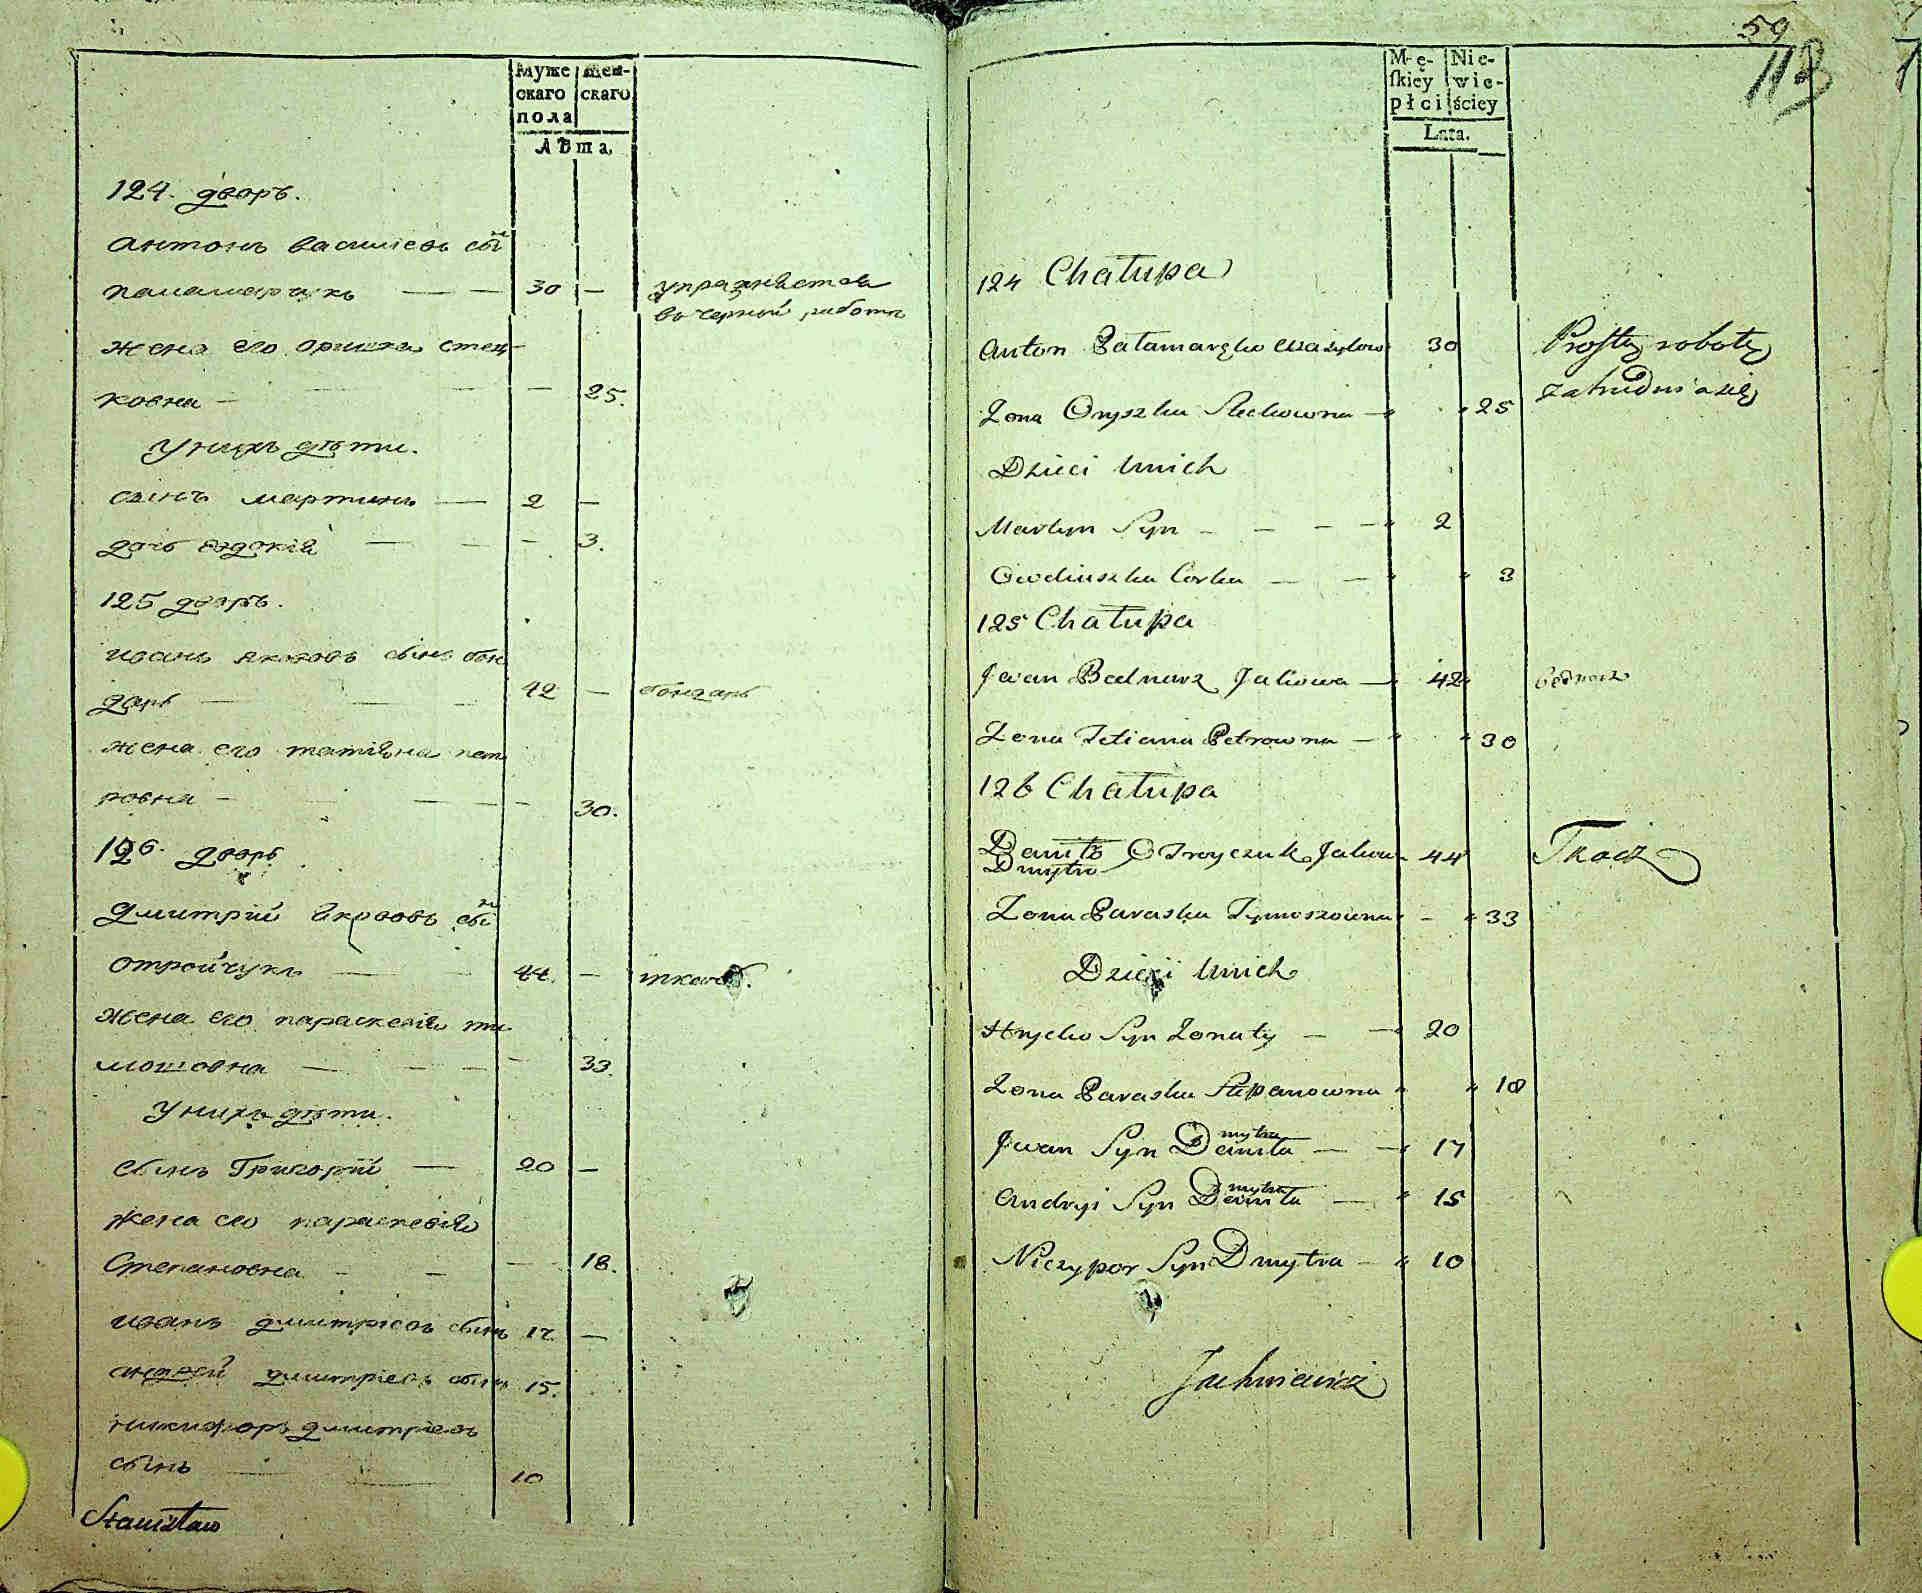 Муже
скаго
пола
жен-
скаго
Лѣта,
124. дворъ.
антонъ василевъ снъ
паламарчукъ — — 30 —
упражняется
въ черной работѣ
жена его оришка стец-
ковна — — 25.
У нихъ дѣти.
сынъ мартинъ — 2 —
дочь евдокія — — — 3.
125 дворъ.
иванъ якововъ сынъ бон
даръ — — — 42 — бондаръ
жена его татіяна пет
ровна — — — — 30.
126. дворъ
дмитрій якововъ снъ
отройчукъ — — 44. — ткачъ.
жена его параскевія ти
мошовна — — — — 33.
У нихъ дѣти.
сынъ Григорій — 20 —
жена его параскевія
Степановна — — — 18.
иванъ дмитріевъ сынъ 17. —
андрей дмитріевъ сынъ 15.
никифоръ дмитріевъ
сынъ — — 10
Stanisław
59
113
Mę-
skiey
płci
Nie-
wie-
ściey
Lata.
124 Chałupa
Anton Pałamarczuk Wasylow 30
Prostą robotą
zatrudnia się
Żona Oryszka Steckowna — 25
Dzieci unich
Martyn Syn — — — — 2
Owdiuszka Corka — — 3
125 Chałupa
Jwan Bednarz Jakowa — 42 bednarz
Żona Tetiana Petrowna — 30
126 Chałupa
Daniło Otroyczuk Jakow 44 Tkacz
Dmytro
Żona Paraska Tymoszowna — 33
Dzieci unich
Hrycko Syn Żonaty — — 20
Żona Paraska Stepanowna 18
mytra
Jwan Syn Daniła — — 17
mytra
Andryi Syn Daniła — 15
Niczypor Syn Dmytra — 10
Jachniewicz